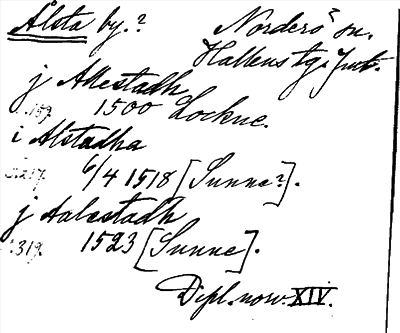 Ålsta by.? Norderö sn.
Hallens tg. Jmt.
j Allestadh
s. 159. 1500 Lockne.
i Alstadha
s. 217. 6/4 1518 [Sunne?].
j Aalestadh
s. 319. 1523 [Sunne].
Dipl. norv. XIV.